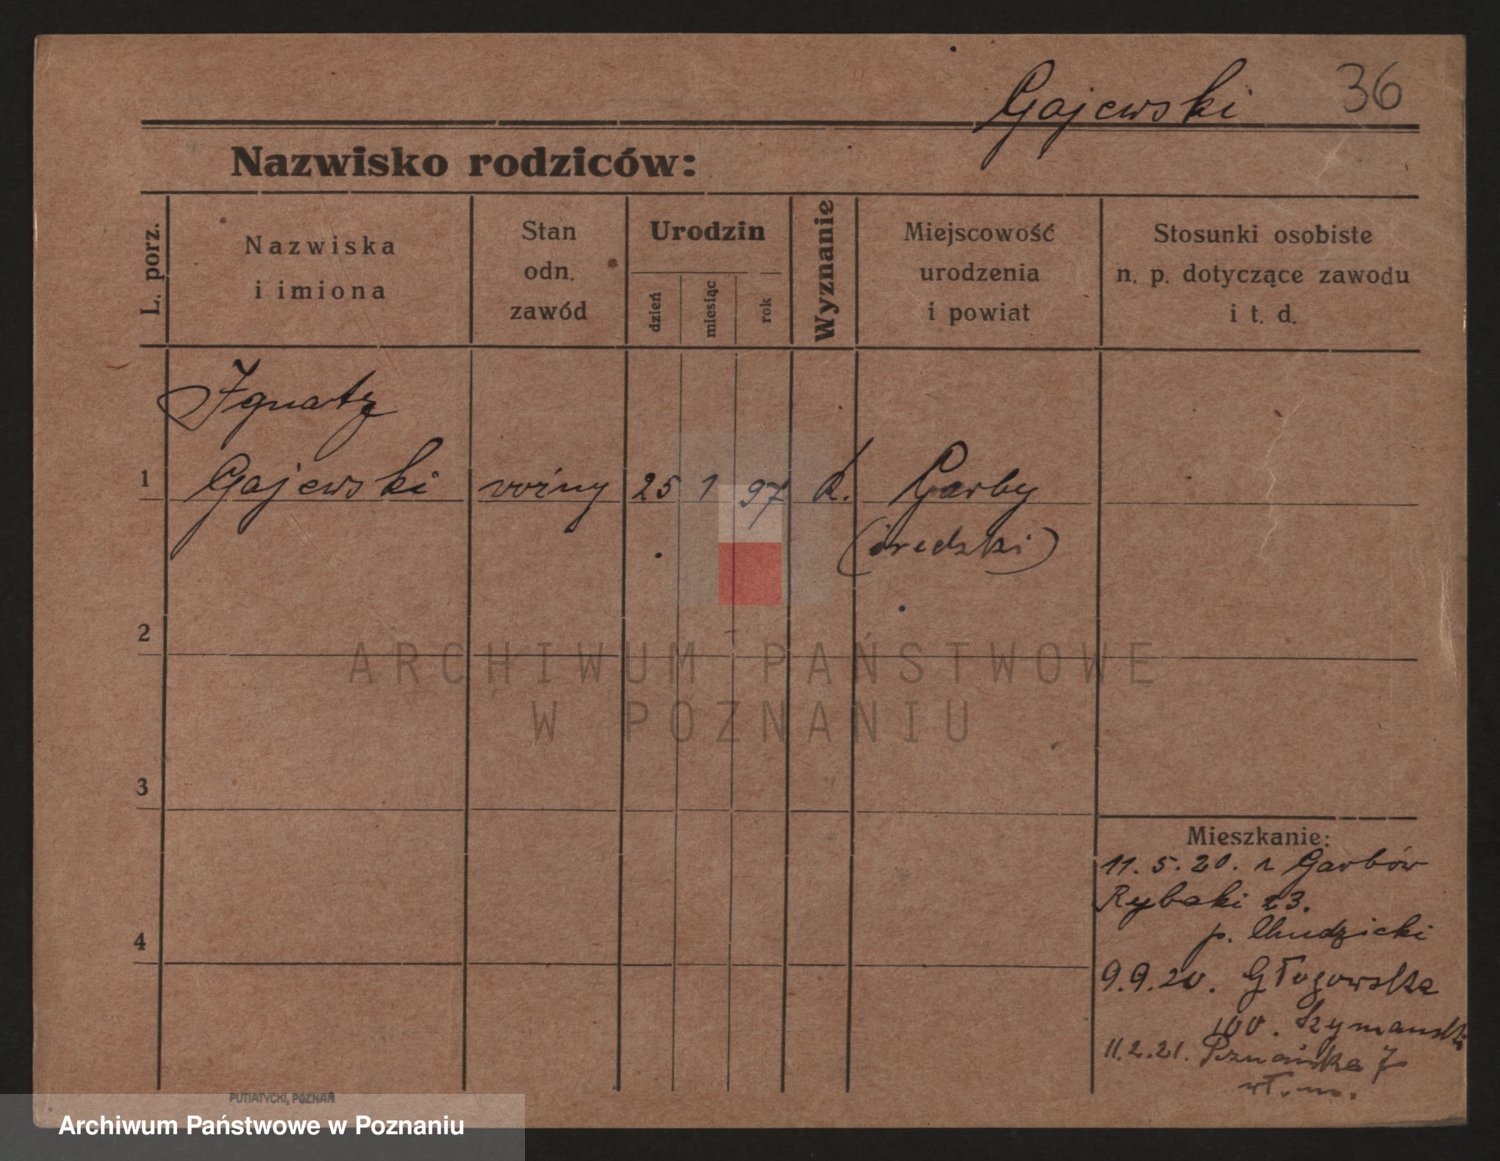 Gajewski 36
Nazwisko rodziców:
L. porz.
Nazwiska
i imiona
Stan
odn.
zawód
Urodzin
dzień
miesiąc
rok
Wyznanie
Miejscowość
urodzenia
i powiat
Stosunki osobiste
n. p. dotyczące zawodu
i t. d.
Ignatz
1 Gajewski woźny 25 1 97 k. Garby
(średzki)
2
ARCHIWUM PAŃSTWOWE
W POZNANIU
3
Mieszkanie:
11. 5. 20. z Garbów
Rybaki 23.
p. Chudzicki
4
9.9.20. Głogowska
100. Szymański
11.2.21. Poznańska 7
wł. m.
PUTIATYCKI, POZNAŃ
Archiwum Państwowe w Poznaniu